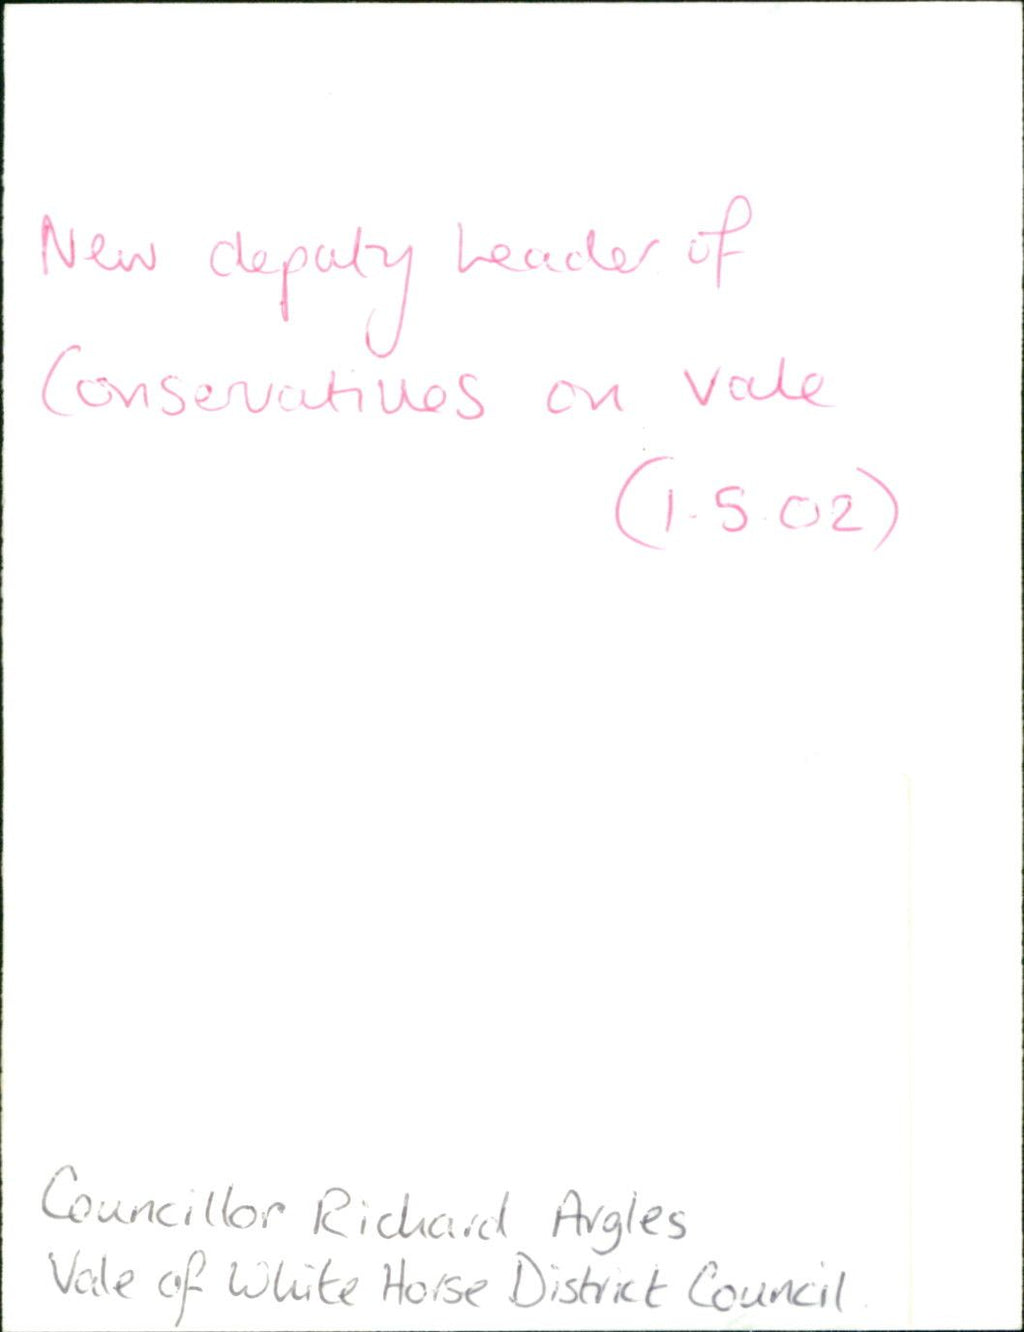 New deputy Leader of
Conservatives on Vale
(1.5.02)
Councillor Richard Argles
Vale of White Horse District Council